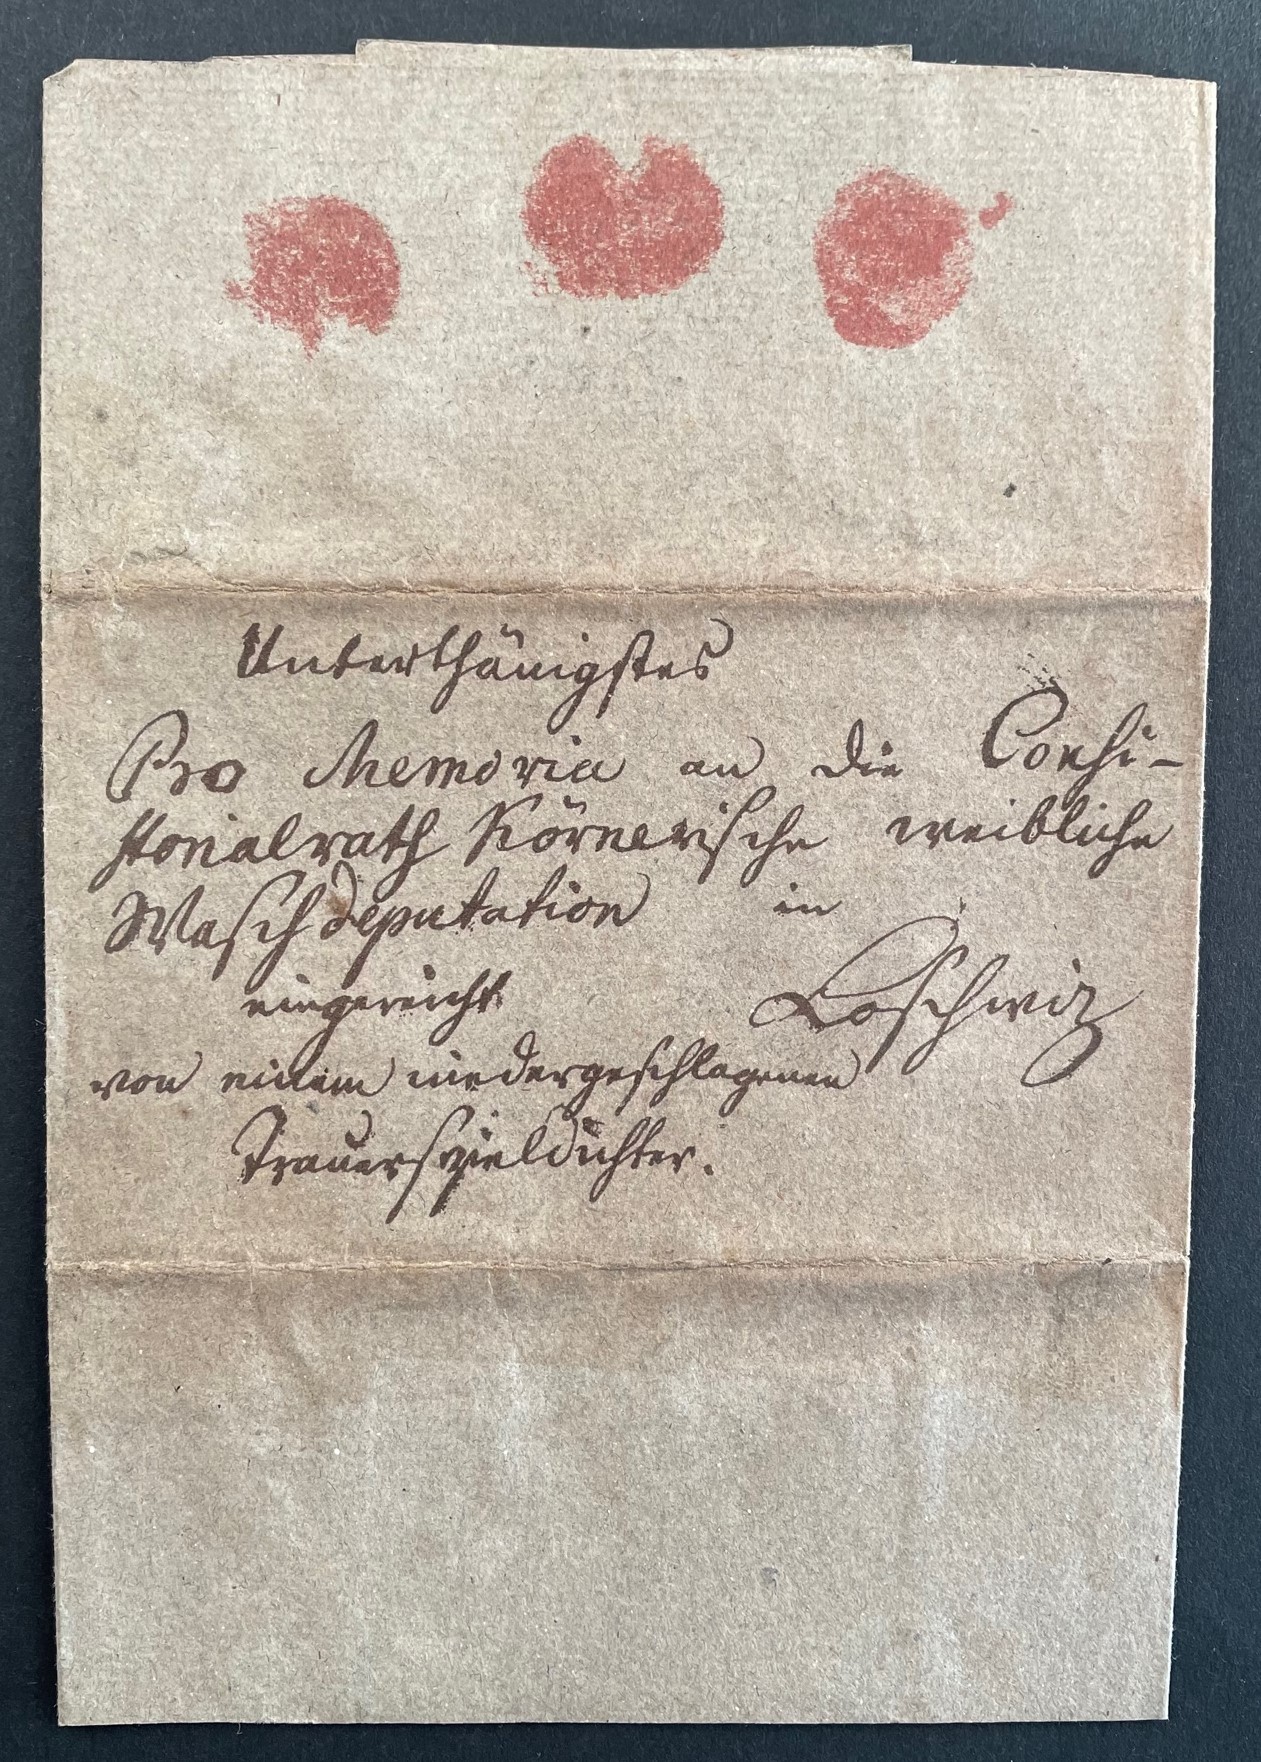 Unterthänigstes
Pro Memoria an die Consi-
storialrath Körnerische weibliche
Waschdeputation in
eingereicht Loschwiz
von einem niedergeschlagenen
Trauerspieldichter.